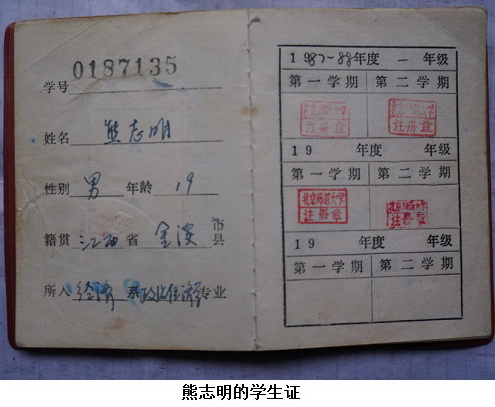 学号 0187135
姓名 熊志明
性别 男 年龄 19
籍贯 江西 省 金溪 市县
所入 经济 系 政治经济学 专业
1987-88年度 一 年级
第一学期 第二学期
注册章 注册章
19 年度 年级
第一学期 第二学期
北京师范大学 北京师范大学
注册章 注册章
19 年度 年级
第一学期 第二学期
熊志明的学生证